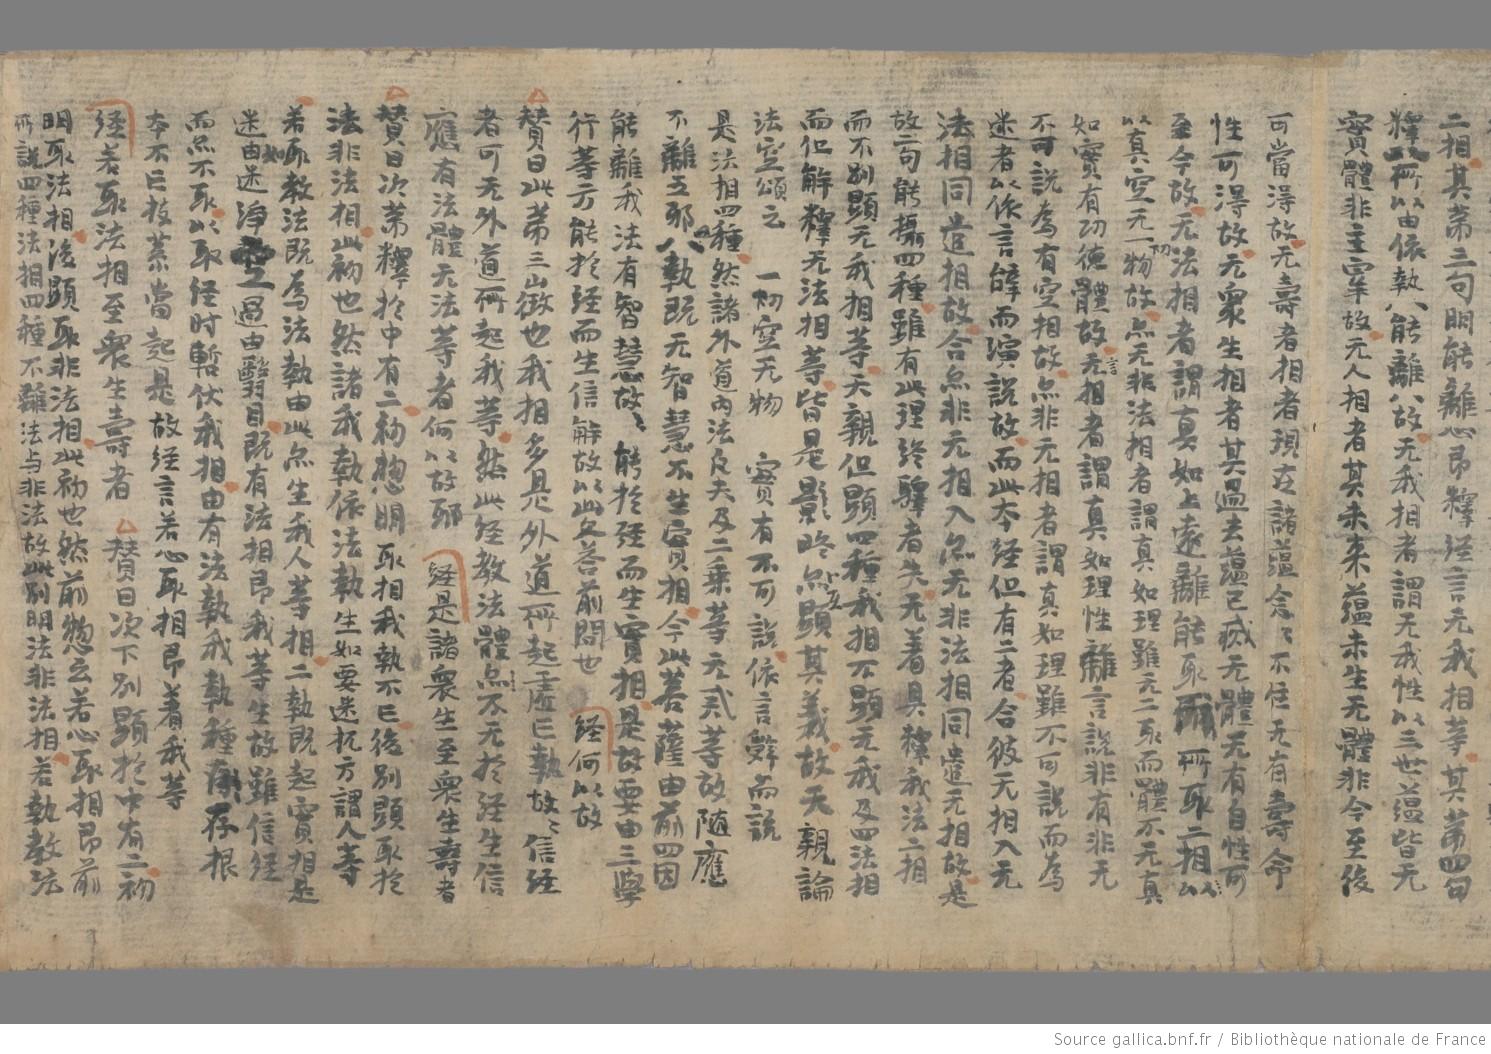 二相其第三句明能離心昂釋經言无我相等其第四句
釋所以由依執八能離八故无我相者謂无我性以三世蕴皆无
實體非主宰故无人相者其未来蕴未生无體非今至後
可當得故无壽者相者現在諸蕴念〻不住无有壽命
性可得故无衆生相者其過去蕴已滅无體无有自性可
至今故无法相者謂真如上遠離能取所取二相以
以真空无一物故点无非法相者謂真如理雖无二取而體不无真
如實有功德體故无相者謂真如理性離言說非有非无
不可說為有空相故点非无相者謂真如理雖不可說而為
迷者以依言辟而演說故而此本經但有二者合彼无相入无
法相同遣相故合点非无相入点无非法相同遣无相故是
故二句能攝四種雖有此理終驛者失无著具釋我法二相
而不別顯无我相等天親但顯四種我相不顯无我及四法相
而但解釋无法相等皆是影略点顯其義故天親論
法空頌云 一切空无物 實有不可說 依言辟而說
是法相四種然諸外道内法凡夫及二乘等元貳等故随應
不離五耶八執既无智慧不生實相今此菩薩由前四因
能離我法有智慧故〻能扵經而生實相是故要由三學
行等方能扵經而生信解故以此各荅前問也 經何以故
賛曰此第三山徵也我相多見外道所起虚巨執故〻信經
者可无外道所起我等然此經教法體点不无扵經生信
應有法體无法等者何以故耶 經是諸衆生至衆生壽者
賛曰次第釋扵中有二初惣明取相我執不巨後別顯取扵
法非法相此初也然諸我執依法執生如要迷杌方謂人等
若取教法既為法執由此点生我人等相二執既起實相是
迷由如迷淨過由翳目既有法相昂我等生故雖信經
而点不取以取经时暫伏我相由有法執我執種存根
本不巨枝葉當起是故經言若心取相昂著我等
經若取法相至衆生壽者 賛曰次下別顯扵中有二初
明取法相後顯取非法相此初也然前惣云若心取相昂前
所說四種法相四種不離法与非法故此別明法非法相若執教法